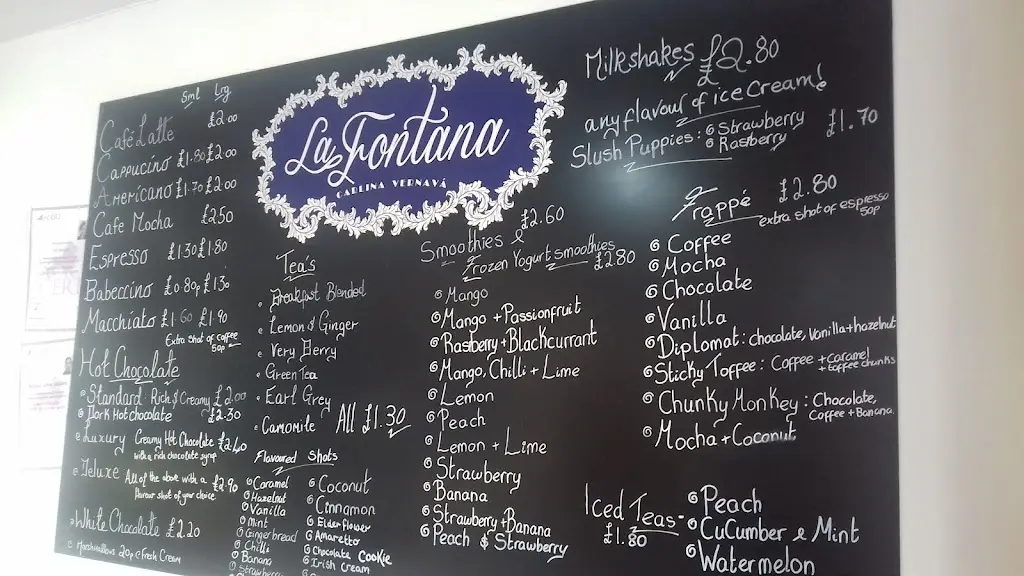 Sml Lrg
Café Latte £2.00
Cappucino £1.80 £2.00
Americano £1.70 £2.00
Cafe Mocha £2.50
Espresso £1.30 £1.80
Babeccino £0.80p £1.30
Macchiato £1.60 £1.90
Extra Shot of coffee
50p
Hot Chocolate
Standard Rich & Creamy £2.00
Dark Hot chocolate £2.30
Luxury Creamy Hot Chocolate £2.40
with a rich chocolate syrup
Deluxe All of the above with a £2.90
flavour shot of your choice
White Chocolate £2.20
Marshmallows 20p & Fresh Cream
La Fontana
CARLINA VERNAVÁ
Tea's
Breakfast Blended
Lemon & Ginger
Very Berry
Green Tea
Earl Grey
Camomile All £1.30
Flavoured Shots
Caramel
Hazelnut
Vanilla
Mint
Gingerbread
Chilli
Banana
Strawberry
Coconut
Cinnamon
Elderflower
Amaretto
Chocolate Cookie
Irish Cream
Smoothies & £2.60
Frozen Yogurt smoothies
£2.80
Mango
Mango + Passionfruit
Rasberry + Blackcurrant
Mango, Chilli + Lime
Lemon
Peach
Lemon + Lime
Strawberry
Banana
Strawberry + Banana
Peach & Strawberry
Milkshakes £2.80
any flavour of ice Cream!
Slush Puppies: Strawberry £1.70
Rasberry
Frappé £2.80
extra shot of espresso
50p
Coffee
Mocha
Chocolate
Vanilla
Diplomat: chocolate, Vanilla + hazelnut
Sticky Toffee: Coffee + Caramel
+ toffee chunks
Chunky Monkey: Chocolate,
Coffee + Banana.
Mocha + Coconut
Iced Teas-
£1.80
Peach
CuCumber & Mint
Watermelon